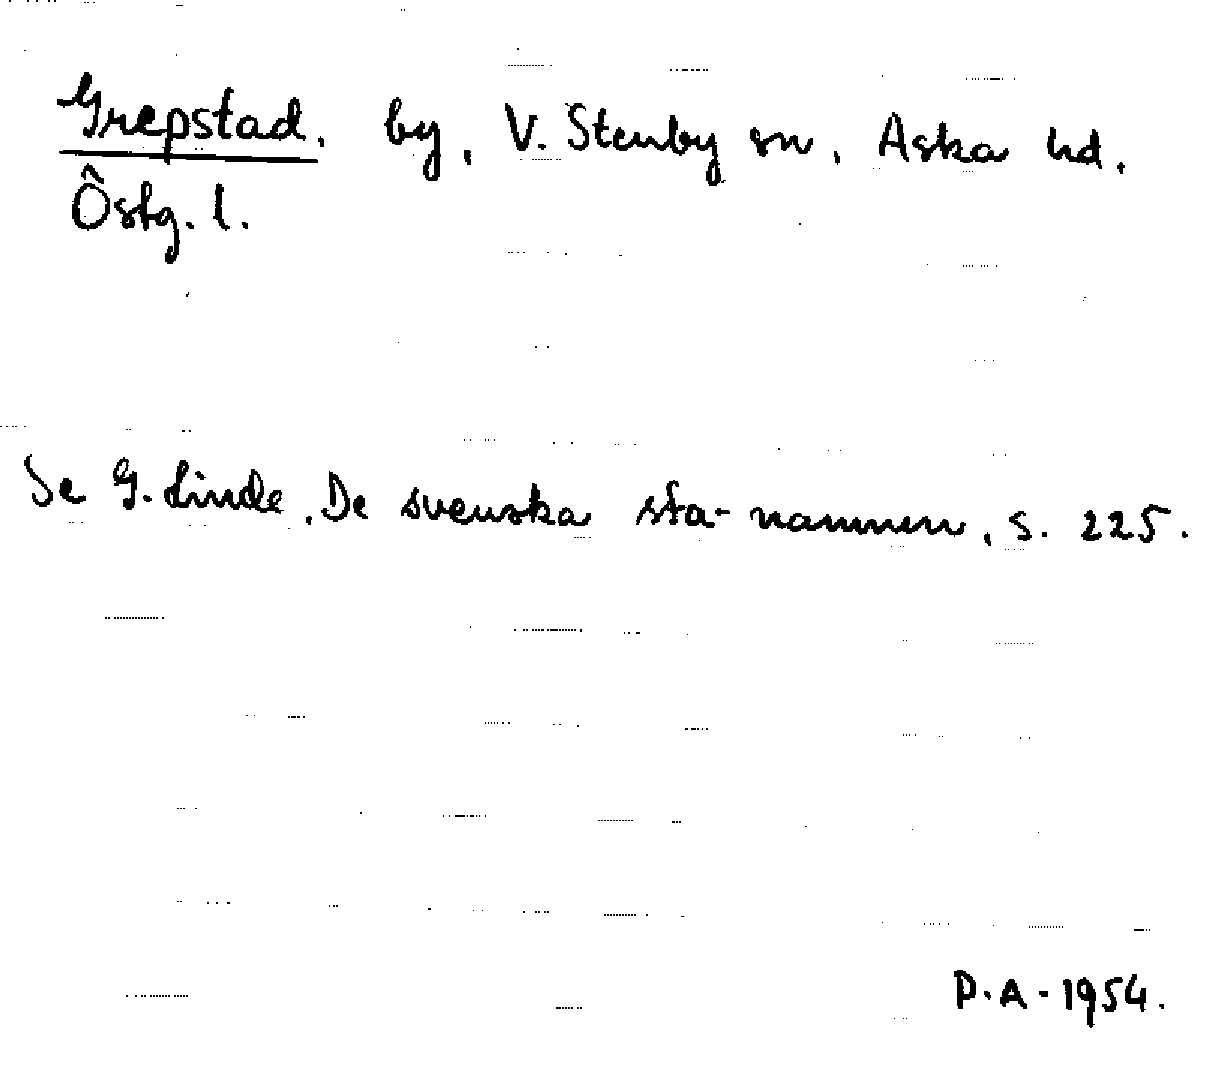 Grepstad, by, V. Stenby sn, Aska hd.
Östg. l.
Se G. Linde, De svenska sta-namnen, s. 225.
P.A - 1954.